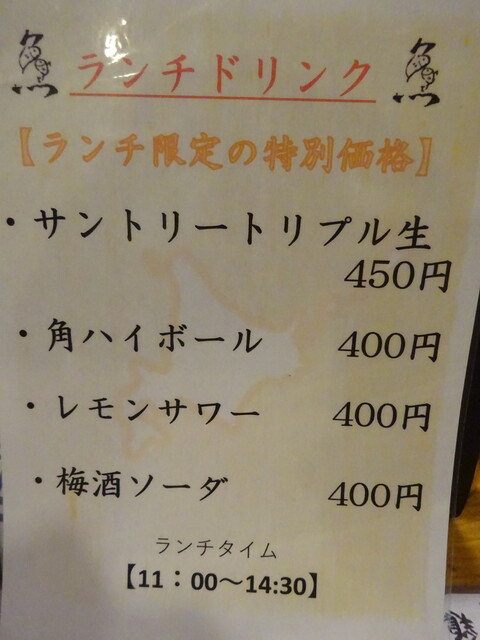 魚 ランチドリンク 魚
【ランチ限定の特別価格】
・サントリートリプル生
450円
・角ハイボール 400円
・レモンサワー 400円
・梅酒ソーダ 400円
ランチタイム
【11：00～14:30】